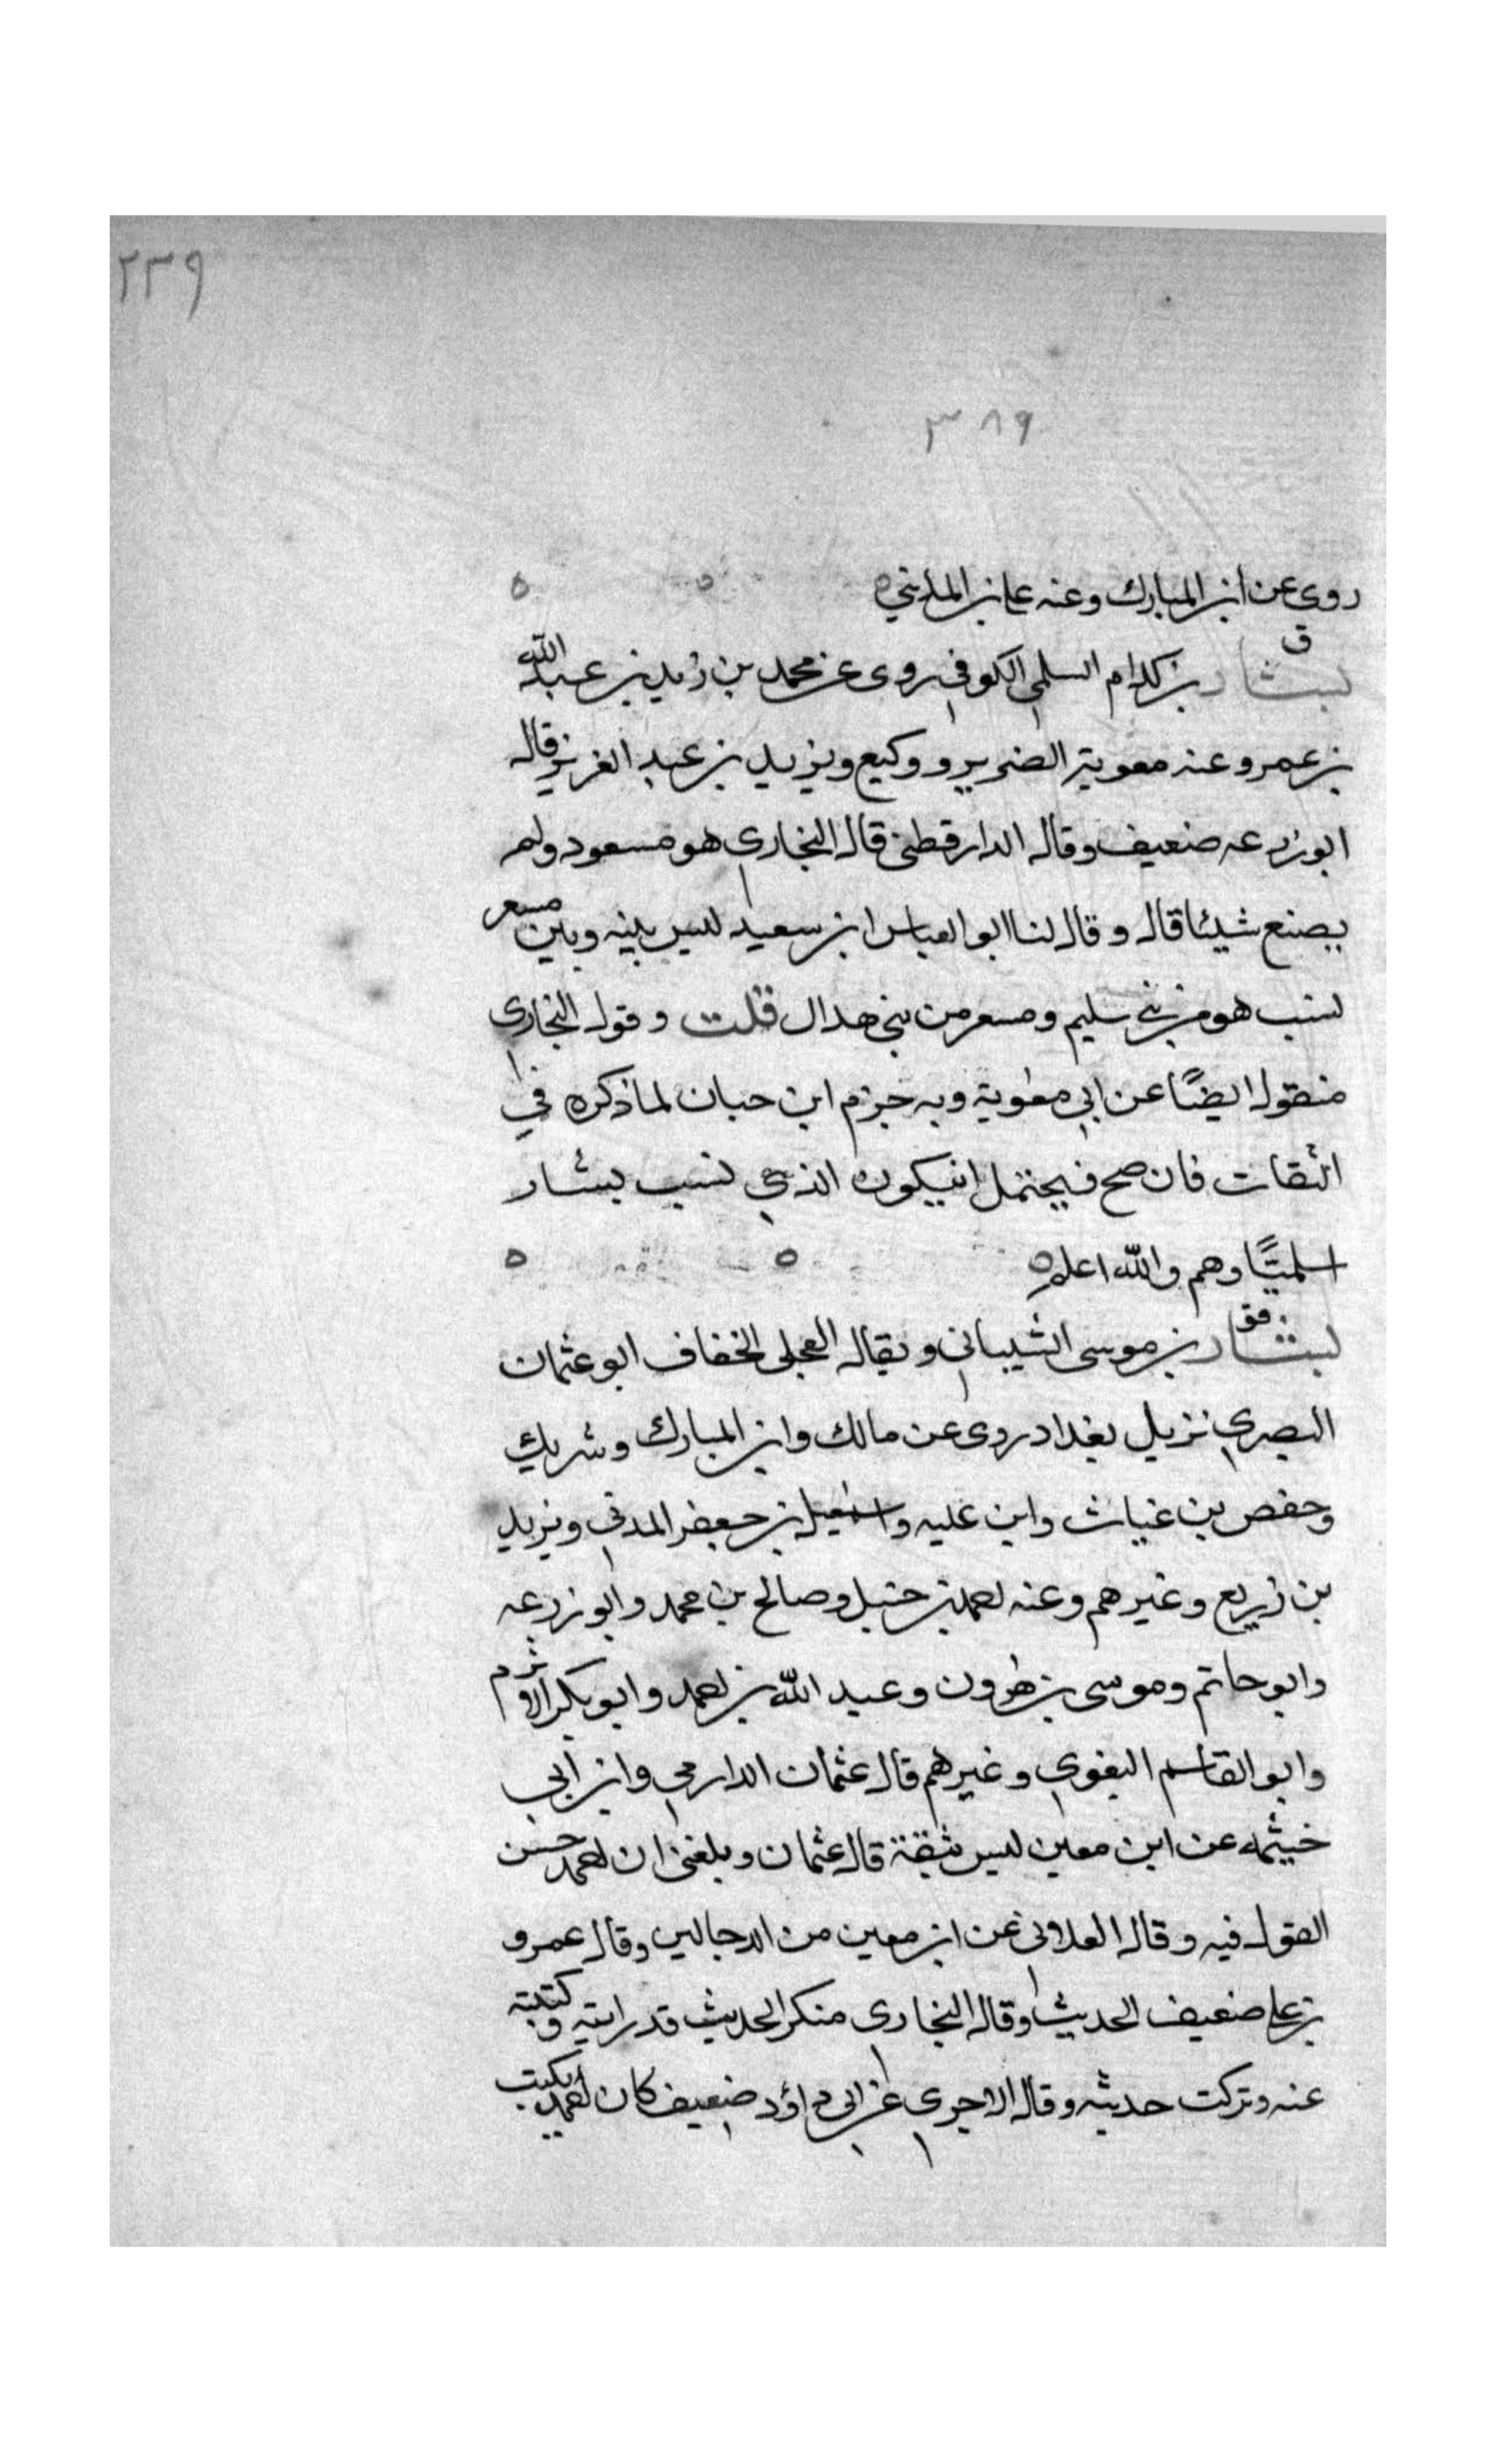 ٢٣٩
٣٨٩
روى عن ابن المبارك وعنه علي بن المديني ٥ ٥ ٥
ق
بشار بن كدام السلمي الكوفي روى عن محمد بن زيد بن عبد الله
بن عمر وعنه معوية الضرير ووكيع ويزيد بن عبد العزيز قال
ابو زرعه ضعيف وقال الدارقطني قال البخاري هو مسعود ولم
يصنع شيئا قال وقال لنا ابو العباس ابن سعيد ليس بينه وبين مسعر
نسب هو من بني سليم ومسعر من بني هلال قلت وقول البخاري
منقول ايضًا عن ابي معوية وبه جزم ابن حبان لما ذكره في
الثقات فان صح فيحتمل ان يكون الذي نسب بشار
اسلميًا وهم والله اعلم ٥ ٥ ٥
فق
بشار بن موسى الشيباني ويقال العجلي الخفاف ابو عثمان
البصري نزيل بغداد روى عن مالك وابن المبارك وشريك
وحفص بن غياث وابن عليه واسمعيل بن جعفر المدني ويزيد
بن زريع وغيرهم وعنه احمد بن حنبل وصالح بن محمد وابو زرعه
وابو حاتم وموسى بن هرون وعبد الله بن احمد وابو بكر الاثرم
وابو القاسم البغوي وغيرهم قال عثمان الدارمي وابن ابي
خيثمه عن ابن معين ليس بثقة قال عثمان وبلغني ان احمد حسن
القول فيه وقال العلابي عن ابن معين من الدجالين وقال عمرو
بن علي ضعيف الحديث وقال البخاري منكر الحديث قد رايته وكتبت
عنه وتركت حديثه وقال الاجري عن ابي داؤد ضعيف كان احمد يكتب